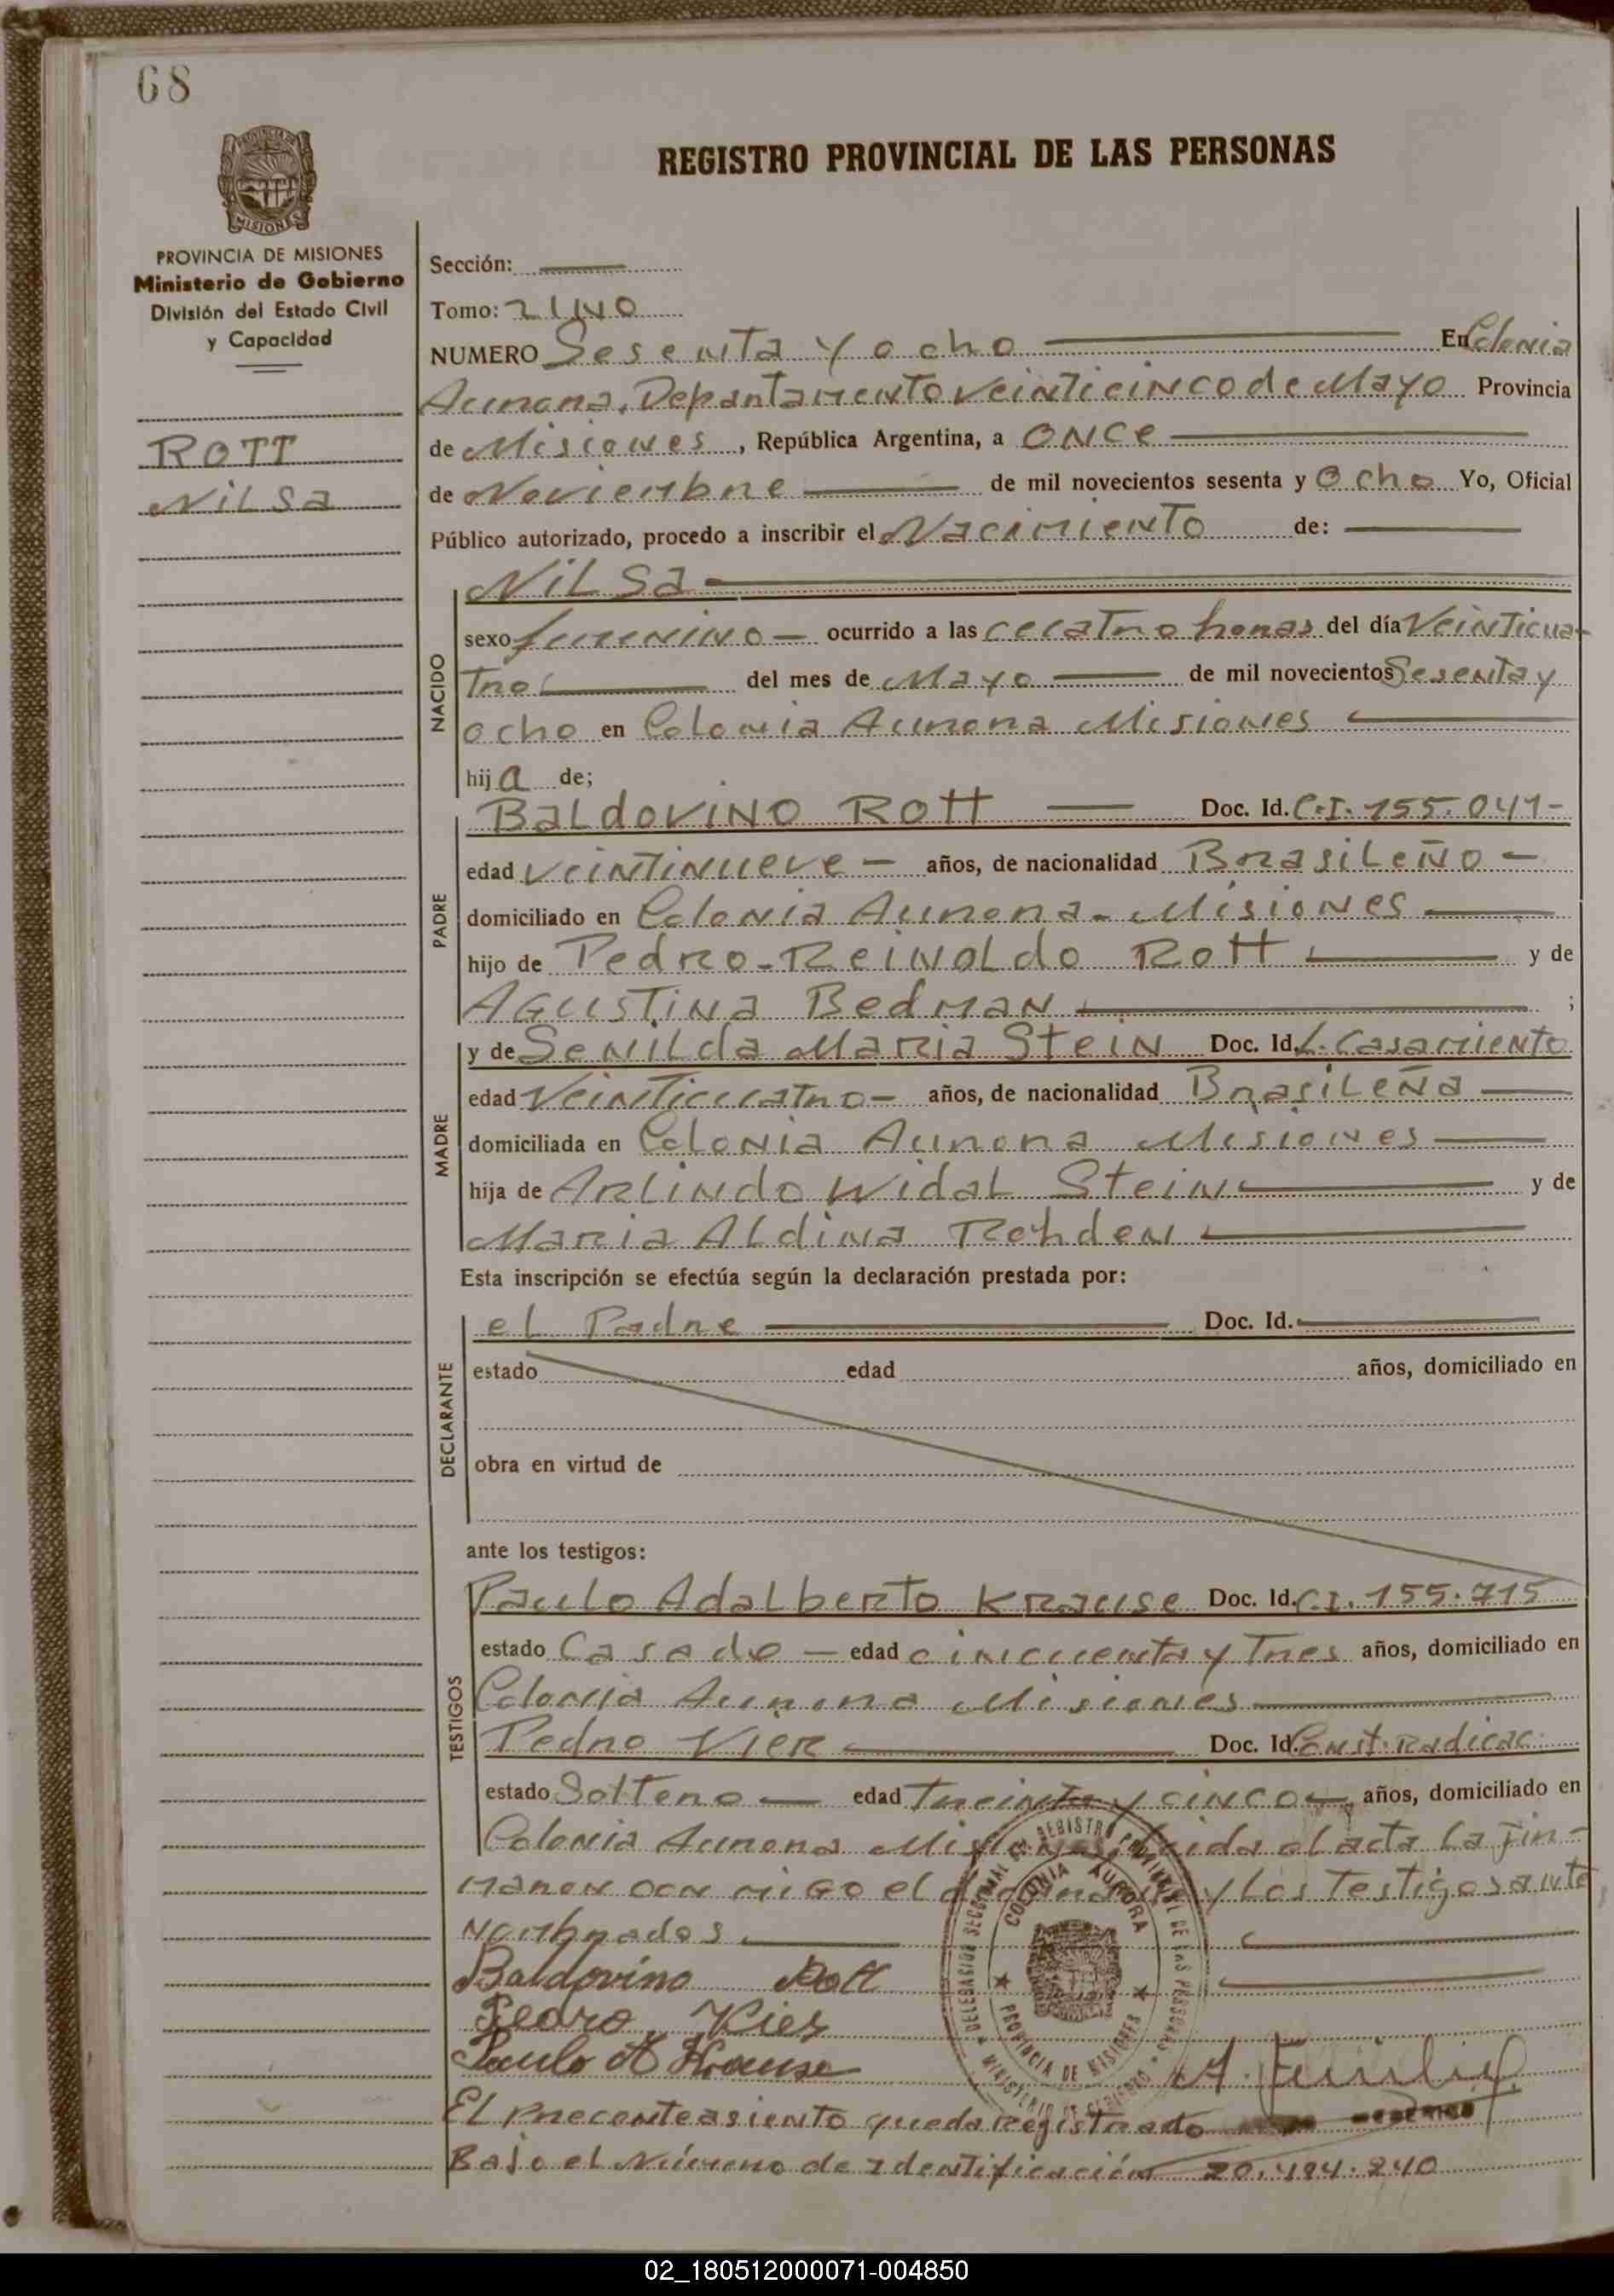 68
REGISTRO PROVINCIAL DE LAS PERSONAS
MISIONES
PROVINCIA DE MISIONES
Ministerio de Gobierno
División del Estado Civil
y Capacidad
ROTT
NILSA
Sección:
Tomo: 2 UNO
NUMERO Sesenta y ocho En Colonia
Aurora, Departamento Veinticinco de Mayo Provincia
de Misiones, República Argentina, a ONCE
de Noviembre de mil novecientos sesenta y Ocho Yo, Oficial
Público autorizado, procedo a inscribir el Nacimiento de:
NACIDO
NiLSa
sexo femenino ocurrido a las cuatro horas del día Veinticua-
tro del mes de Mayo de mil novecientos Sesenta y
ocho en Colonia Aurora Misiones
hija de;
PADRE
BALdoviNO Rott Doc. Id. C.I. 155.041-
edad veintinueve años, de nacionalidad BrasiLeño
domiciliado en Colonia Aurora - Misiones
hijo de Pedro-ReiNOLdo Rott y de
AGUSTiNa BedMaN ;
MADRE
y de SeNiLda Maria SteiN Doc. Id. L. Casamiento
edad Veinticuatro años, de nacionalidad BrasiLeña
domiciliada en Colonia Aurora Misiones
hija de ArLiNdo WidaL SteiN y de
Maria ALdiNa RohdeN
Esta inscripción se efectúa según la declaración prestada por:
DECLARANTE
el Padre Doc. Id.
estado edad años, domiciliado en
obra en virtud de
ante los testigos:
TESTIGOS
Paulo Adalberto Krause Doc. Id. C.I. 155.715
estado Casado edad cincuenta y Tres años, domiciliado en
Colonia Aurora Misiones
Pedro Vier Doc. Id. Const. Radicac.
estado Soltero edad Treinta y cinco años, domiciliado en
Colonia Aurora Misiones, leida el acta la fir-
maron con migo el declarante y los Testigos ante
nombrados
DELEGACION SECCIONAL DEL REGISTRO PROVINCIAL DE LAS PERSONAS
MINISTERIO DE GOBIERNO
COLONIA AURORA
PROVINCIA DE MISIONES
Baldovino Rott
Pedro Vier
Paulo A Krause
El precente asiento queda registrado
Bajo el Número de Identificación 20.484.240
02_180512000071-004850